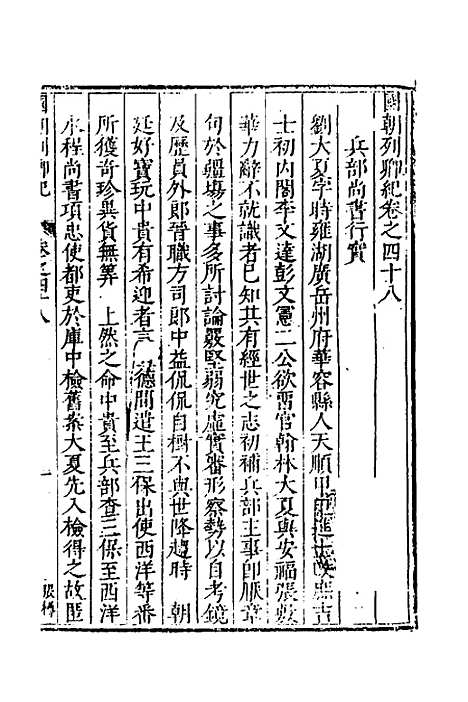 國朝列卿紀卷之四十八
兵部尚書行實
劉大夏字時雍湖廣岳州府華容縣人天順甲申進士改庶吉
士初內閣李文達彭文憲二公欲畱官翰林大夏與安福張敷
華力辭不就識者已知其有經世之志初補兵部主事即厭章
句於疆場之事多所討論覈堅弱究虛實審形察勢以自考鏡
及歷員外郎晉職方司郎中益侃侃自樹不與世降趨時 朝
廷好寶玩中貴有希迎者言 德間遣王三保出使西洋等番
所獲奇珍異貨無筭 上然之命中貴至兵部查三保至西洋
水程尚書項忠使都吏於庫中檢舊案大夏先入檢得之故匿
國朝列卿紀 卷之四十八 一